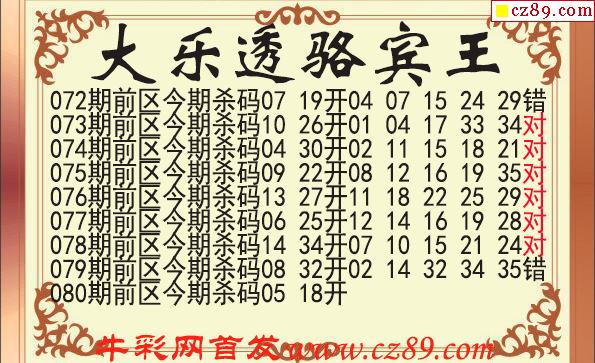 cz89.com
大乐透骆宾王
072期前区今期杀码07 19开04 07 15 24 29错
073期前区今期杀码10 26开01 04 17 33 34对
074期前区今期杀码04 30开02 11 15 18 21对
075期前区今期杀码09 22开08 12 16 19 35对
076期前区今期杀码13 27开11 18 22 25 29对
077期前区今期杀码06 25开12 14 16 19 28对
078期前区今期杀码14 34开07 10 15 21 24对
079期前区今期杀码08 32开02 14 32 34 35错
080期前区今期杀码05 18开
牛彩网首发www.cz89.com